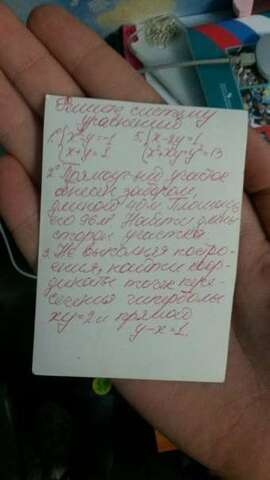 Решите систему
уравнений
1. { x²-y=-1 5. { x-3y=1
x+y=1 x²+xy-y²=13
2. Прямоуг-ный участок
обнесён забором,
длиной 40м. Площадь
его 96м². Найти длины
сторон участка
3. Не выполняя постро-
ения, найти коор-
динаты точек пере-
сечения гиперболы
xy=2 и прямой
y-x=1.